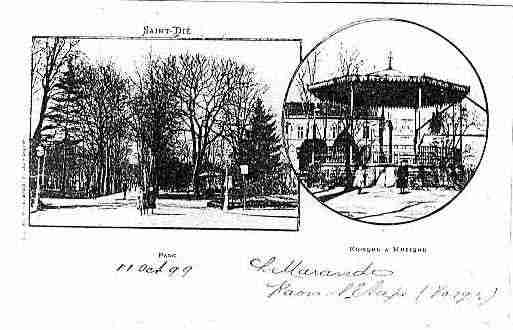 SAINT-DIÉ
PARC
KIOSQUE A MUSIQUE
11 Oct 99
L. Marande
Raon-l'Etape (Vosges)